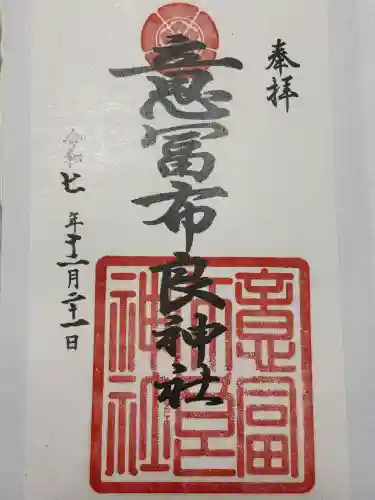 奉拝
意冨布良神社
令和七年十二月二十一日
意冨布良神社